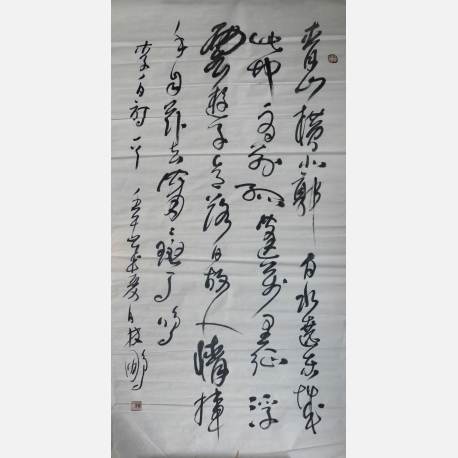 青山横北郭白水遶东城
此地一为别孤蓬万里征浮
雲游子意落日故人情挥
手自兹去萧々班马鸣
李白诗一首